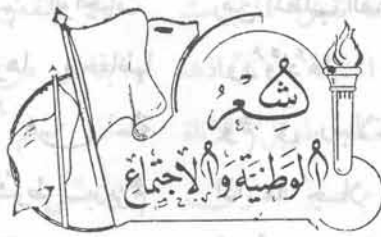 شِعْرُ
الْوَطَنِيَّةِ وَالْاِجْتِمَاعِ